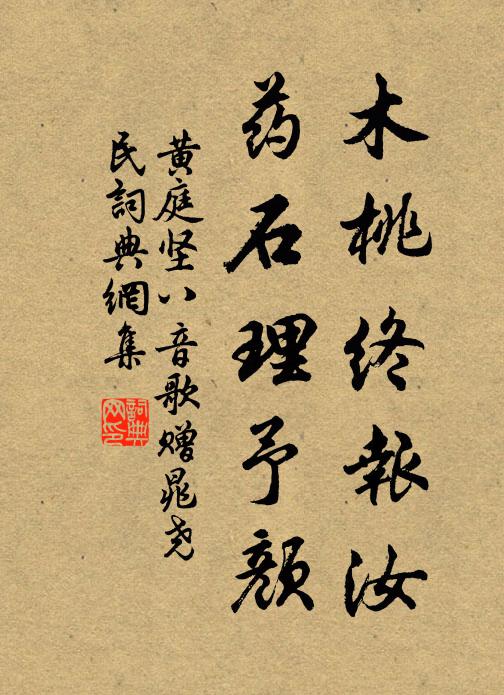 木桃终報汝
药石理予颜
黄庭坚八音歌赠晁尧
民詞典網集
詞典
网印